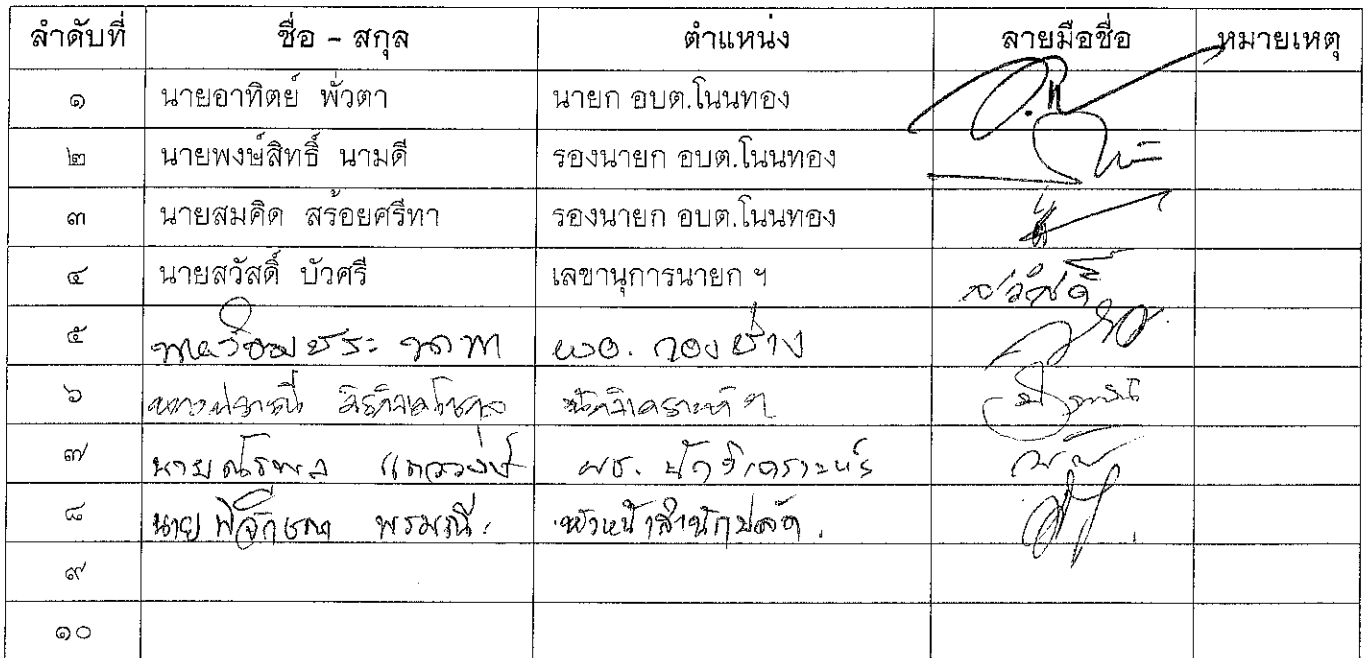 ลำดับที่ ชื่อ - สกุล ตำแหน่ง ลายมือชื่อ หมายเหตุ
๑ นายอาทิตย์ พั่วตา นายก อบต.โนนทอง
๒ นายพงษ์สิทธิ์ นามดี รองนายก อบต.โนนทอง
๓ นายสมคิด สร้อยศรีทา รองนายก อบต.โนนทอง
๔ นายสวัสดิ์ บัวศรี เลขานุการนายก ฯ สวัสดิ์
๕ ผอ. กองช่าง
๖ นักวิเคราะห์ ฯ
๗ นาย ผช. นักวิเคราะห์ฯ
๘ นาย พรมณี หัวหน้าสำนักปลัด
๙
๑๐